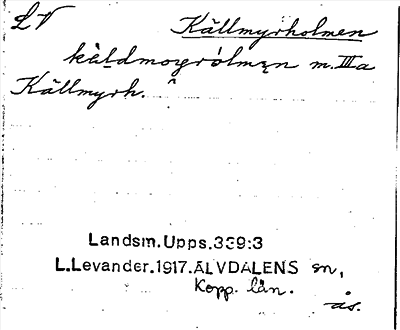 LV Källmyrholmen
kèldmoyrólmęn m. III a
Källmyrh.
Landsm. Upps. 339:3
L. Levander. 1917. ÄLVDALENS sn,
Kopp. län.
ås.